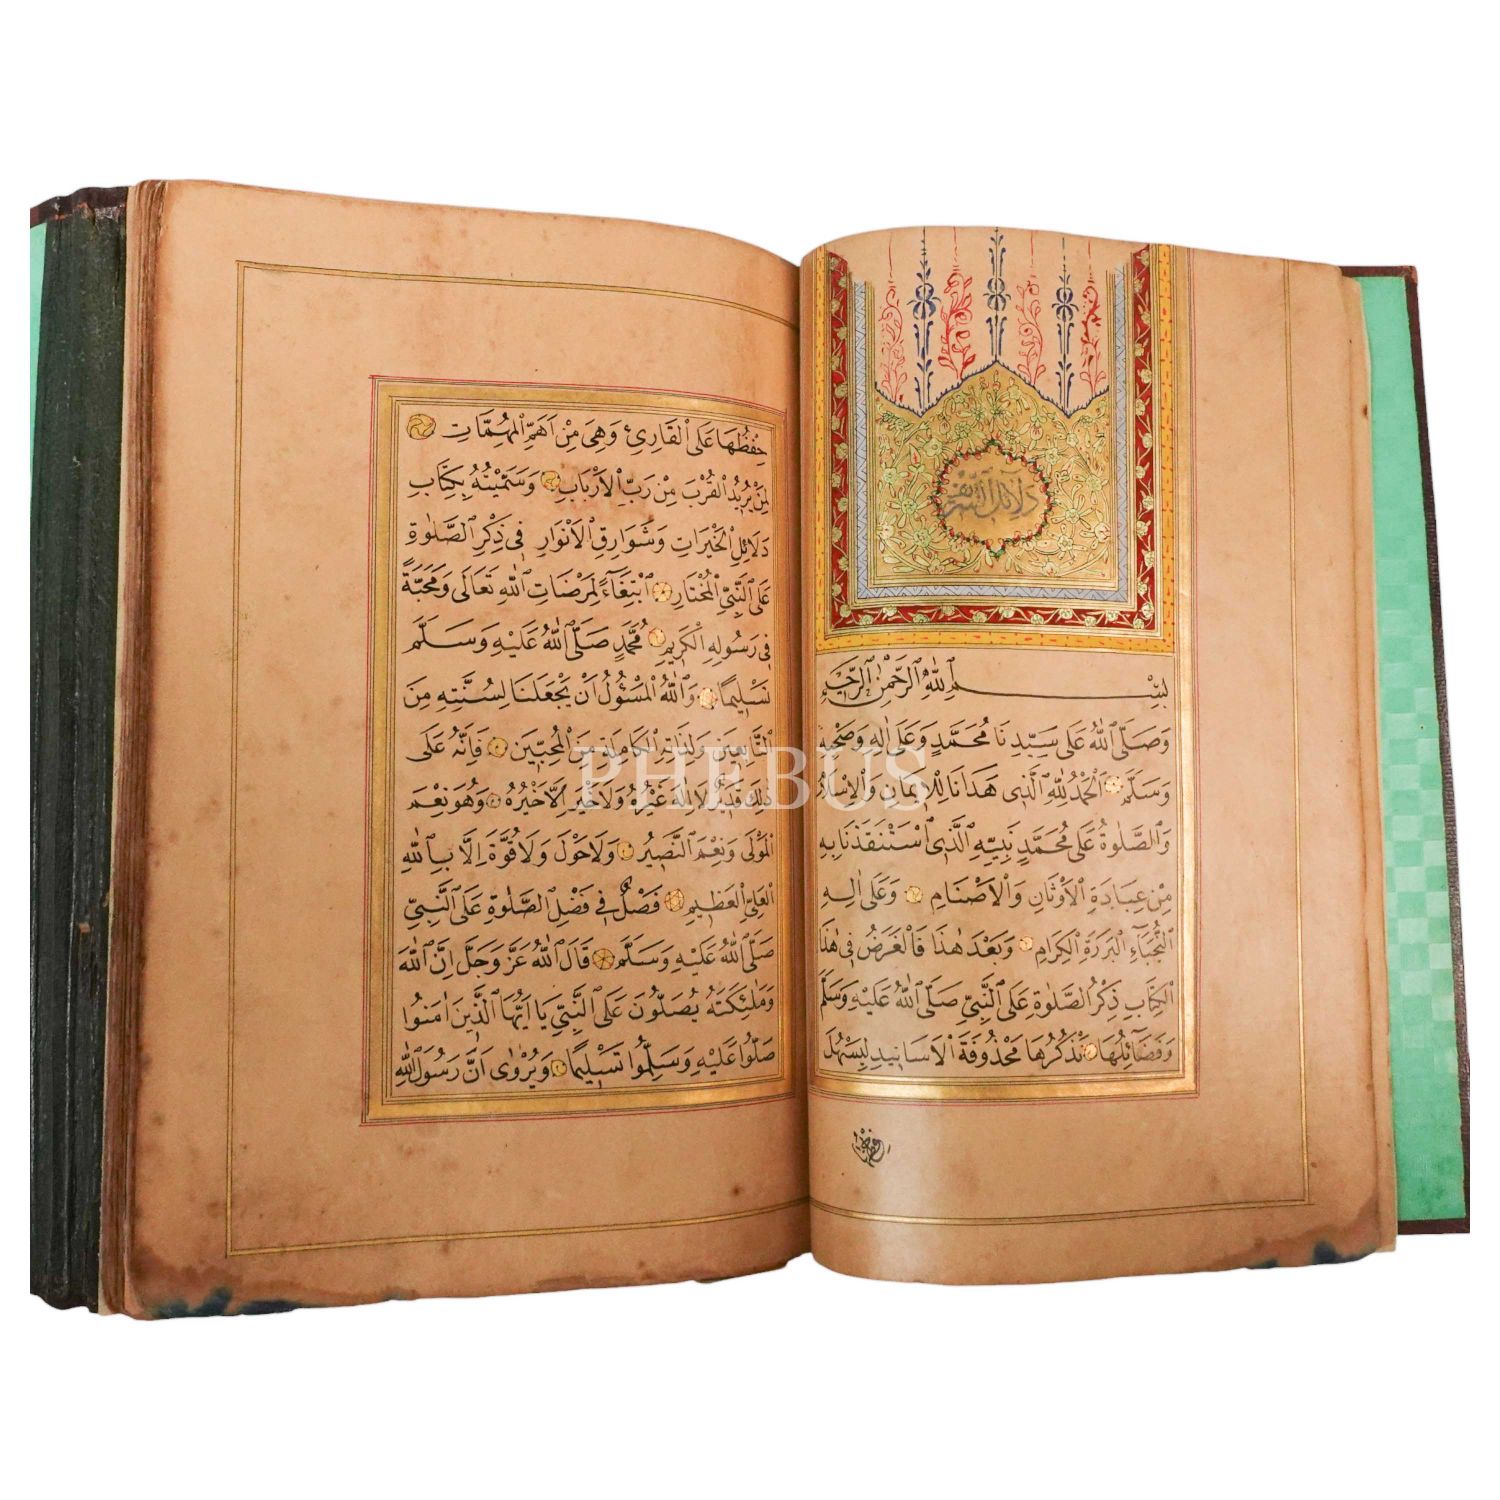 دَلَائِلُ الشَّرِيفْ
بِسْــــــمِ اللّٰهِ الرَّحْمٰنِ الرَّحِيمِ
وَصَلَّى اللّٰهُ عَلَى سَيِّدِنَا مُحَمَّدٍ وَعَلَى اٰلِهِ وَصَحْبِهِ
وَسَلَّمَ اَلْحَمْدُ لِلّٰهِ الَّذِى هَدَانَا لِلْاِيمَانِ وَالْاِسْلَامِ
وَالصَّلٰوةُ عَلَى مُحَمَّدٍ نَبِيِّهِ الَّذِى اسْتَنْقَذَنَا بِهِ
مِنْ عِبَادَةِ الْاَوْثَانِ وَالْاَصْنَامِ وَعَلَى اٰلِهِ
النُّجَبَاءِ الْبَرَرَةِ الْكِرَامِ وَبَعْدَ هٰذَا فَالْغَرَضُ فِى هٰذَا
الْكِتَابِ ذِكْرُ الصَّلٰوةِ عَلَى النَّبِيِّ صَلَّى اللّٰهُ عَلَيْهِ وَسَلَّمَ
وَفَضَائِلُهَا نَذْكُرُهَا مَحْذُوفَةَ الْاَسَانِيدِ لِيَسْهُلَ
حِفْظُهَا
حِفْظُهَا عَلَى الْقَارِئِ وَهِىَ مِنْ اَهَمِّ الْمُهِمَّاتِ
لِمَنْ يُرِيدُ الْقُرْبَ مِنْ رَبِّ الْاَرْبَابِ وَسَمَّيْتُهُ بِكِتَابِ
دَلَائِلِ الْخَيْرَاتِ وَشَوَارِقِ الْاَنْوَارِ فِى ذِكْرِ الصَّلٰوةِ
عَلَى النَّبِيِّ الْمُخْتَارِ ابْتِغَاءً لِمَرْضَاتِ اللّٰهِ تَعَالَى وَمَحَبَّةً
فِى رَسُولِهِ الْكَرِيمِ مُحَمَّدٍ صَلَّى اللّٰهُ عَلَيْهِ وَسَلَّمَ
تَسْلِيمًا وَاللّٰهُ الْمَسْؤُلُ اَنْ يَجْعَلَنَا لِسُنَّتِهِ مِنَ
التَّابِعِينَ وَلِذَاتِهِ الْكَامِلَةِ مِنَ الْمُحِبِّينَ فَاِنَّهُ عَلَى
ذٰلِكَ قَدِيرٌ لَا اِلٰهَ غَيْرُهُ وَلَا خَيْرَ اِلَّا خَيْرُهُ وَهُوَ نِعْمَ
الْمَوْلَى وَنِعْمَ النَّصِيرُ وَلَا حَوْلَ وَلَا قُوَّةَ اِلَّا بِاللّٰهِ
الْعَلِيِّ الْعَظِيمِ فَصْلٌ فِى فَضْلِ الصَّلٰوةِ عَلَى النَّبِيِّ
صَلَّى اللّٰهُ عَلَيْهِ وَسَلَّمَ قَالَ اللّٰهُ عَزَّ وَجَلَّ اِنَّ اللّٰهَ
وَمَلٰئِكَتَهُ يُصَلُّونَ عَلَى النَّبِيِّ يَا اَيُّهَا الَّذِينَ اٰمَنُوا
صَلُّوا عَلَيْهِ وَسَلِّمُوا تَسْلِيمًا وَيُرْوٰى اَنَّ رَسُولَ اللّٰهِ
PHEBUS